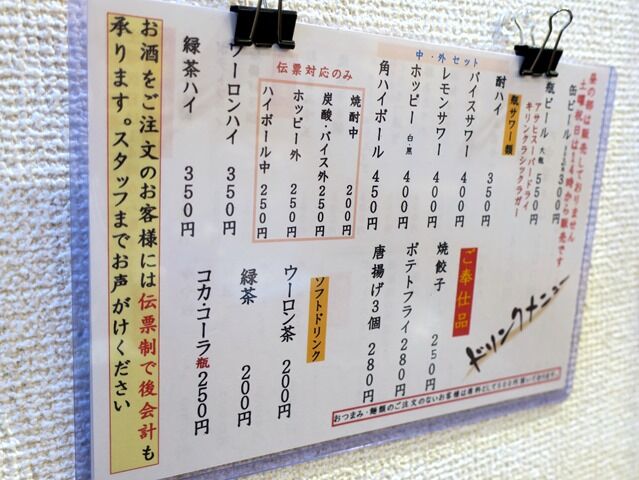 ドリンクメニュー
昼の部は販売しておりません
土曜祝日は14時から販売です
缶ビール 300円
瓶ビール 大瓶 550円
アサヒスーパードライ
キリンクラシックラガー
瓶サワー類
酎ハイ 350円
バイスサワー 400円
レモンサワー 400円
ホッピー 白・黒 400円
角ハイボール 450円
中・外セット
伝票対応のみ
焼酎中 200円
炭酸・バイス外 250円
ホッピー外 250円
ハイボール中 250円
ウーロンハイ 350円
緑茶ハイ 350円
ご奉仕品
焼餃子 250円
ポテトフライ 280円
唐揚げ3個 280円
ソフトドリンク
ウーロン茶 200円
緑茶 200円
コカ・コーラ 瓶 250円
おつまみ・麺類のご注文のないお客様は席料として500円頂いております。
お酒をご注文のお客様には伝票制で後会計も
承ります。スタッフまでお声がけください